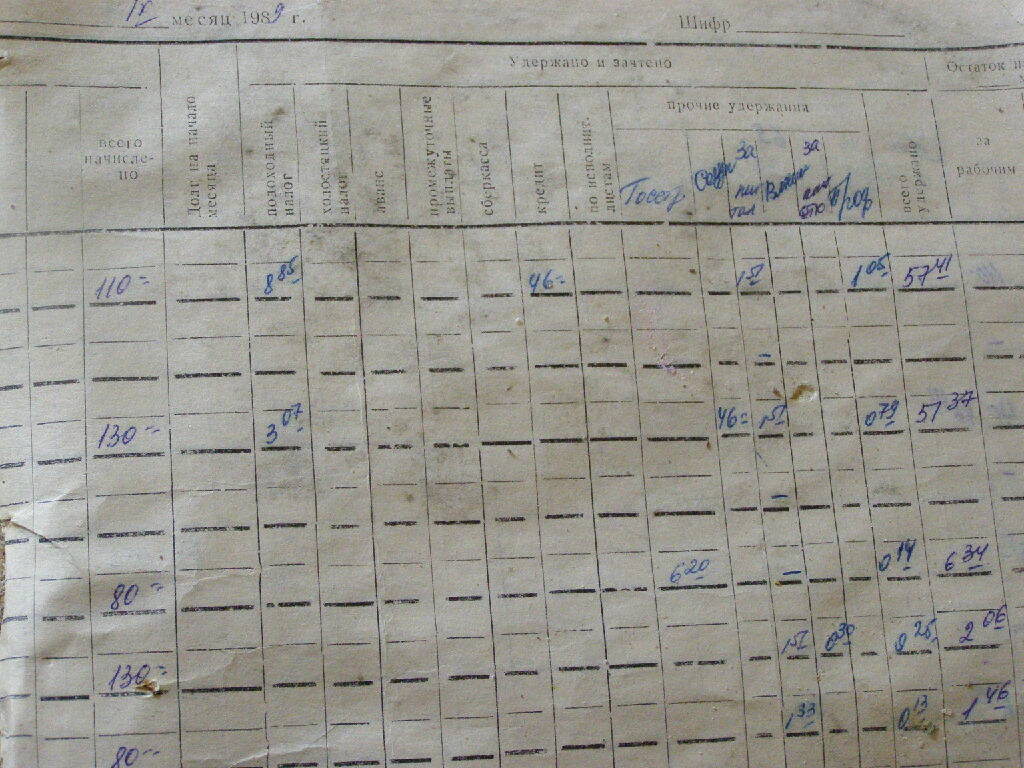 IV месяц 1989 г. Шифр
Удержано и зачтено Остаток
прочие удержания
всего начислено
Долг на начало месяца
подоходный налог
холостяцкий налог
аванс
промежуточные выплаты
сберкасса
кредит
по исполнит. листам
Госстр
за
за
Проф
всего удержано
за рабочим
110= 8 85 46= 1 51 1 05 57 41
130= 3 07 46= 1 51 0 79 51 37
80= 6 20 0 14 6 34
130= 1 51 0 30 0 25 2 06
80= 1 33 0 13 1 46